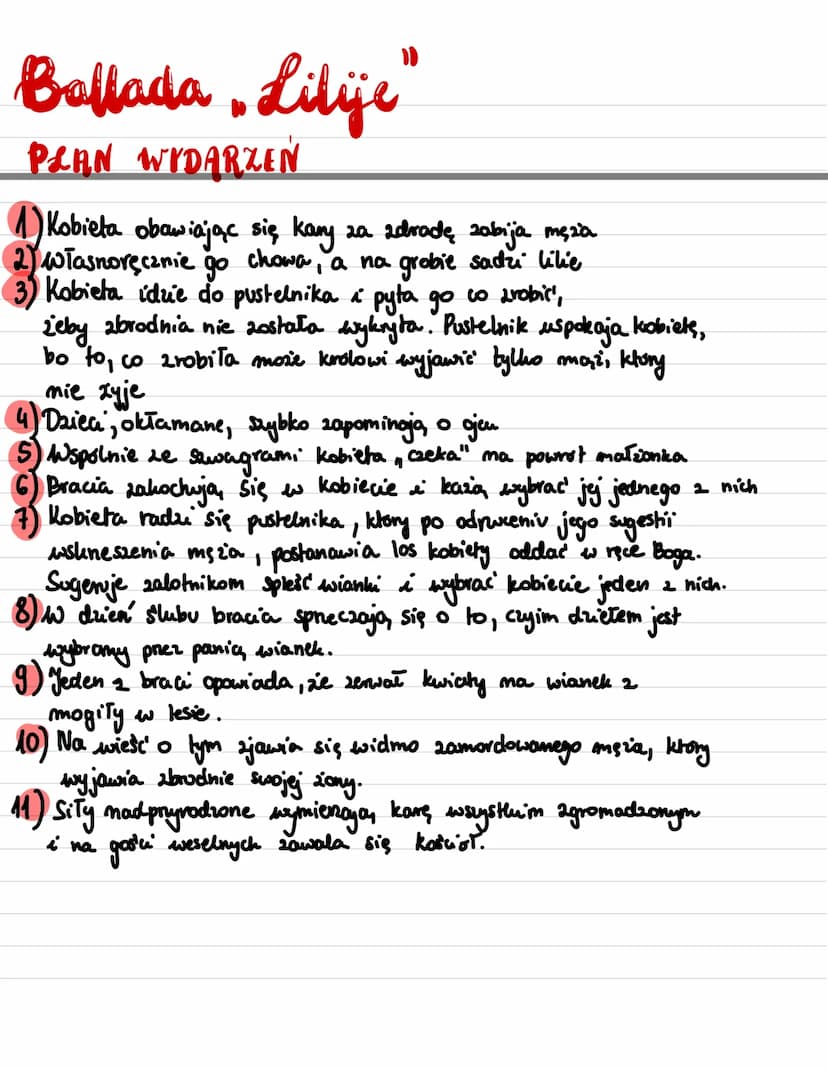 Ballada „Lilije"
PLAN WYDARZEŃ
1) Kobieta obawiając się kary za zdradę zabija męża
2) Własnoręcznie go chowa, a na grobie sadzi lilie
3) Kobieta idzie do pustelnika i pyta go co zrobić,
żeby zbrodnia nie została wykryta. Pustelnik uspokaja kobietę,
bo to, co zrobiła może królowi wyjawić tylko mąż, który
nie żyje
4) Dzieci, okłamane, szybko zapominają o ojcu
5) Wspólnie ze szwagrami kobieta „czeka" na powrót małżonka
6) Bracia zakochują się w kobiecie i każą wybrać jej jednego z nich
7) Kobieta radzi się pustelnika, który po odrzuceniu jego sugestii
wskrzeszenia męża, postanawia los kobiety oddać w ręce Boga.
Sugeruje zalotnikom spleść wianki i wybrać kobiecie jeden z nich.
8) W dzień ślubu bracia sprzeczają się o to, czyim dziełem jest
wybrany przez panią wianek.
9) Jeden z braci opowiada, że zerwał kwiaty na wianek z
mogiły w lesie.
10) Na wieść o tym zjawia się widmo zamordowanego męża, który
wyjawia zbrodnie swojej żony.
11) Siły nadprzyrodzone wymierzają karę wszystkim zgromadzonym
i na gości weselnych zawala się kościół.